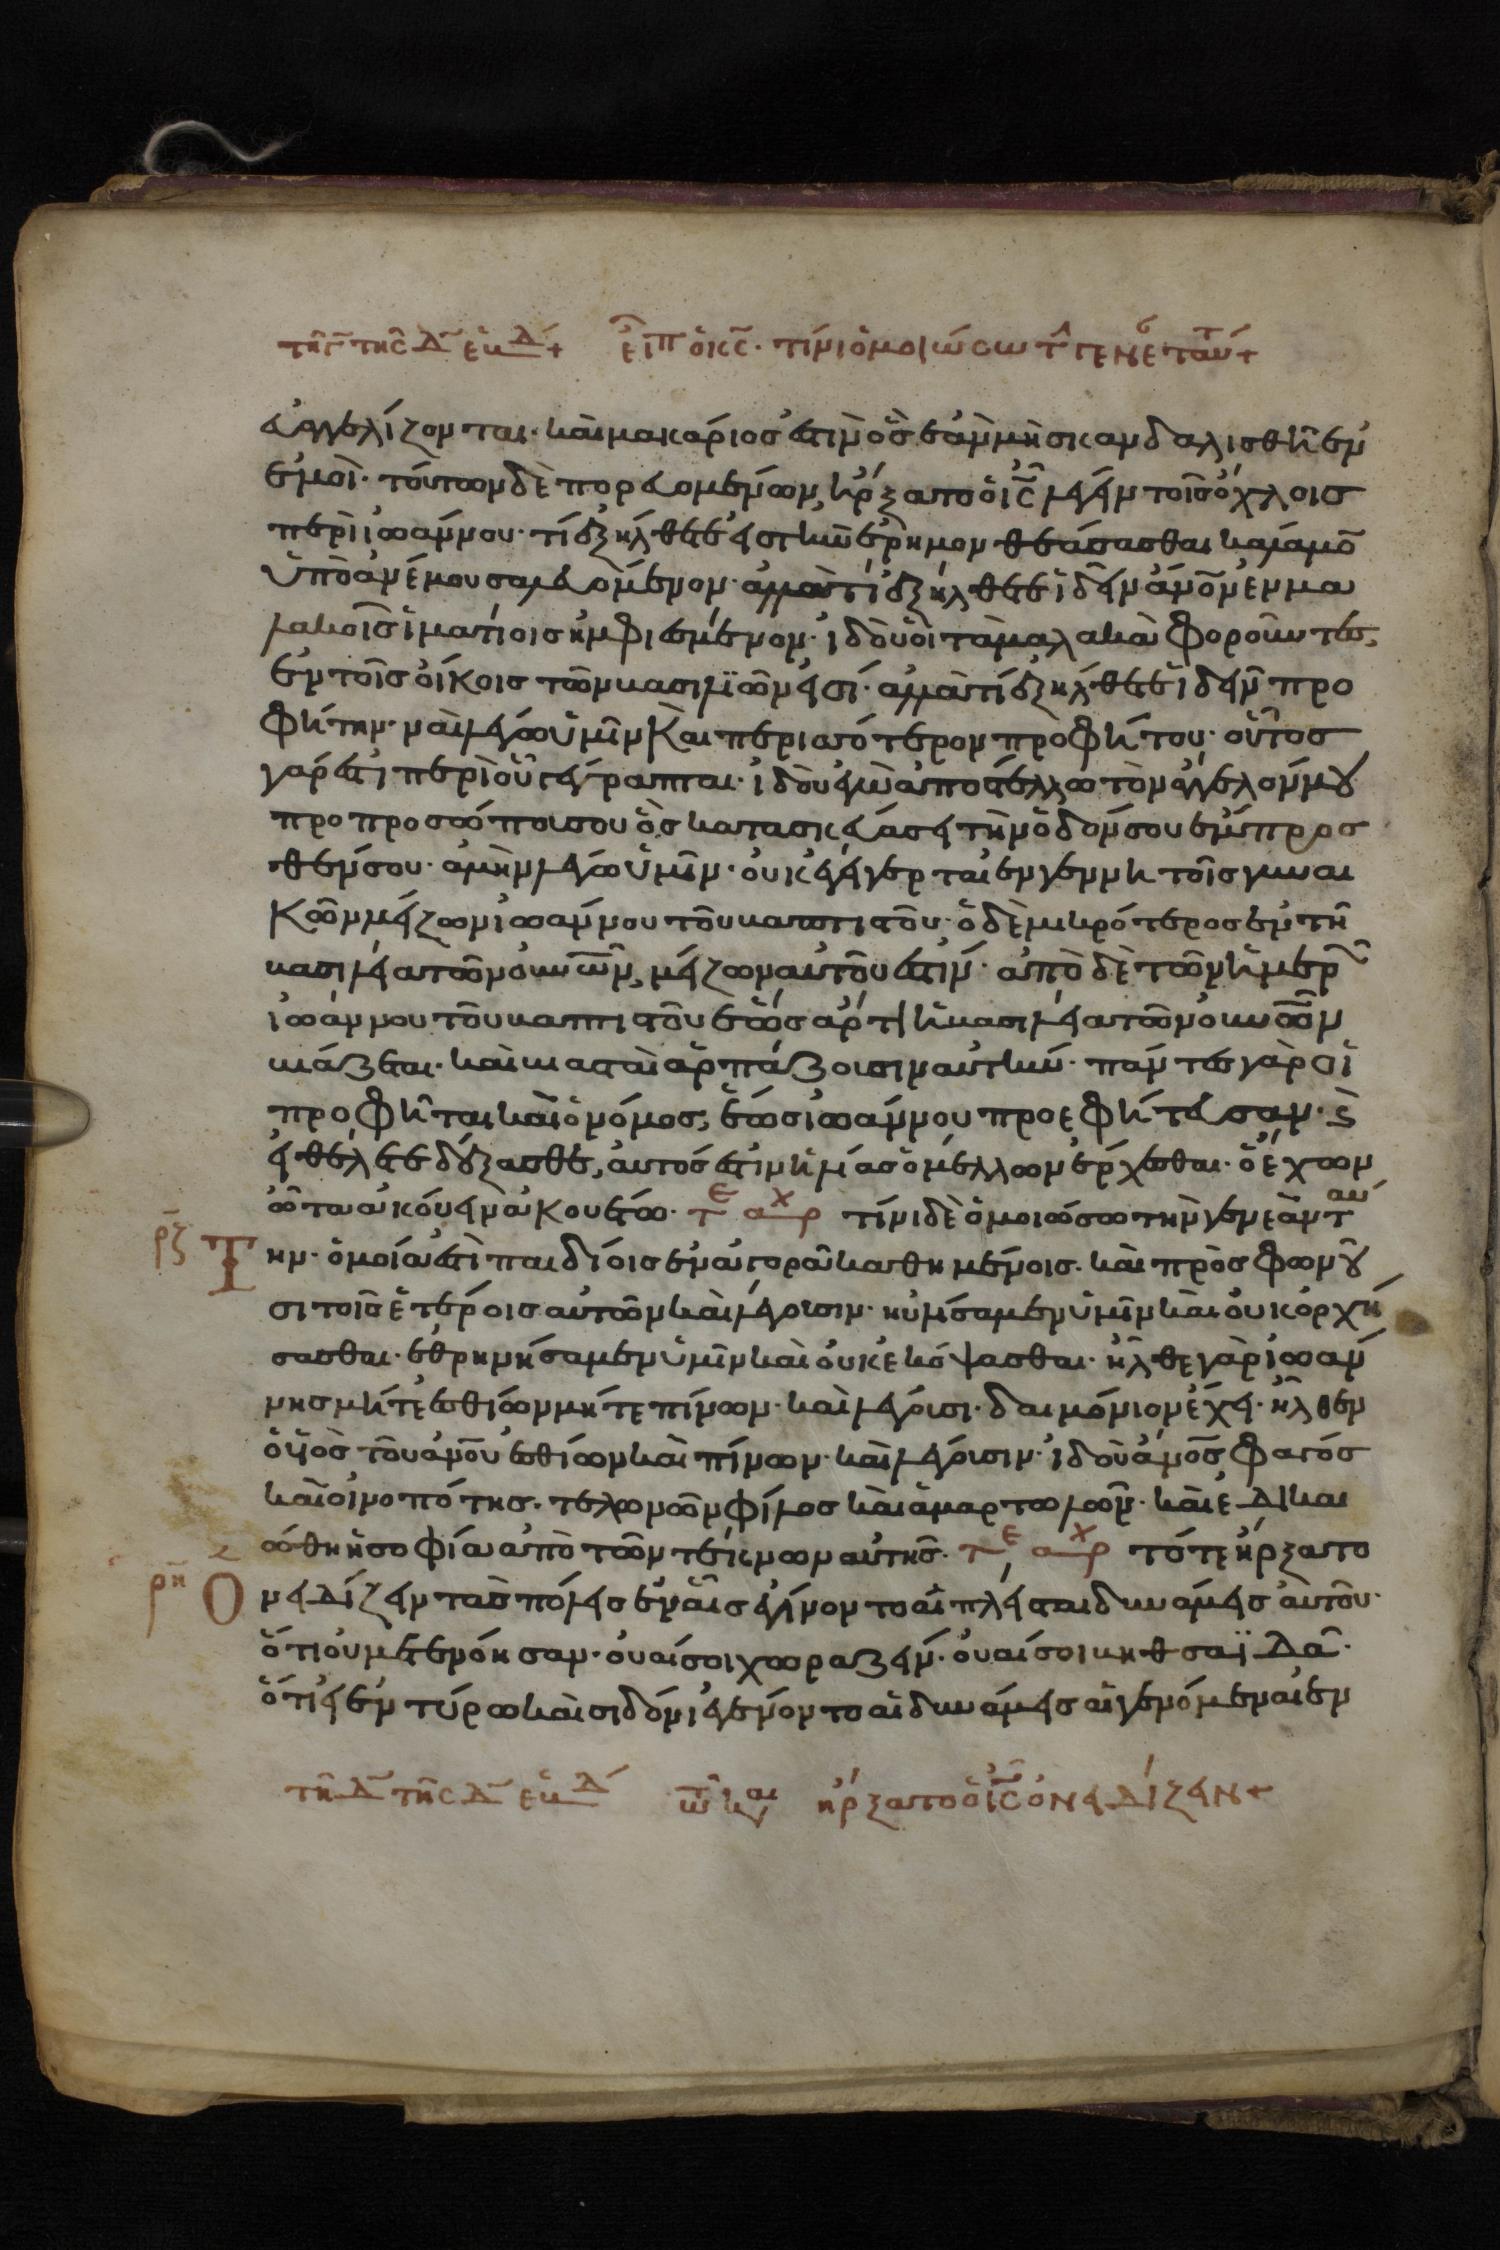 τῆ γ̅ τῆς Δ̅ ἑβδ + εἶπ ὁ κς̅. τίνι ὁμοιώσω τ̑ γενε ταύτ +
εὐαγγελίζονται· καὶ μακάριός ἐστιν ὃς ἐὰν μὴ σκανδαλισθῆ ἐν
ἐμοὶ· τούτων δὲ πορευομένων, ἤρξατο ὁ ις̅ λέγειν τοῖς ὄχλοις
περὶ ἰωάννου· τί ἐξήλθετε εἰς τὴν ἔρημον θεάσασθαι κάλαμο̅
ὑπὸ ἀνέμου σαλευόμενον· ἀλλὰ τί ἐξήλθετε ἰδεῖν ἄν̅ο̅ν ἐν μα
λακοῖς ἱματίοις ἠμφιεσμένον· ἰδοὺ οἱ τὰ μαλακὰ φοροῦντες,
ἐν τοῖς οἴκοις τῶν βασιλέων εἰσί· ἀλλὰ τί ἐξήλθετε ἰδεῖν προ
φήτην· ναὶ λέγω ὑμῖν καὶ περισσότερον προφήτου· οὗτος
γάρ ἐστι περὶ οὗ γέγραπται· ἰδοὺ ἐγὼ ἀποστέλλω τὸν ἄγγελόν μου
προ προσώποι σου ὃς κατασκευάσει τὴν ὁδόν σου ἔμπροσ
θέν σου· ἀμὴν λέγω ὑμῖν· οὐκ ἐγείγερται ἐν γεννητοῖς γυναι
κῶν μείζων ἰωάννου τοῦ βαπτιστοῦ· ὁ δὲ μικρότερος ἐν τῆ
βασιλεία τῶν οὐν̅ω̅ν, μείζων αὐτοῦ ἐστιν· ἀπὸ δὲ τῶν ἡμερ
ἰωάννου τοῦ βαπτιστοῦ ἕως ἄρτι ἡ βασιλεία τῶν οὐν̅ω̅ν
βιάζεται· καὶ βιασταὶ ἁρπάζουσιν αὐτήν· πάντες γὰρ οἱ
προφῆται καὶ ὁ νόμος, ἕως ἰωάννου προεφήτευσαν· καὶ
εἰ θέλετε δέξασθε, αὐτός ἐστιν ἡλίας ὁ μέλλων ἔρχεσθαι· ὁ ἔχων
ὦτα ἀκούειν ἀκουέτω· τε αρχ τίνι δὲ ὁμοιώσω τὴν γενεὰν ταύ
ρζ Την· ὁμοία ἐστὶ παιδίοις ἐν ἀγορᾶ καθημένοις· καὶ προσφωνοῦ
σι τοῖς ἑτέροις αὐτῶν καὶ λέγουσιν· ηὐλήσαμεν ὑμῖν καὶ οὐκ ὀρχή
σασθαι· ἐθρηνήσαμεν ὑμῖν καὶ οὐκ ἐκόψασθαι· ἦλθε γὰρ ἰωάν
νης μήτε ἐσθίων μήτε πίνων· καὶ λέγουσι· δαιμόνιον ἔχει· ἦλθεν
ὁ υἱὸς τοῦ ἀν̅ο̅υ ἐσθίων καὶ πίνων· καὶ λέγουσιν· ἰδοὺ ἄν̅ο̅ς φαγός
καὶ οἰνοπότης· τελωνῶν φίλος καὶ ἁμαρτωλῶν· καὶ ἐδικαι
ώθη ἡ σοφία ἀπὸ τῶν τέκνων αὐτῆς· τε αρχ τότε ἤρξατο
ρη Ονειδίζειν τὰς πόλεις ἐν αἷς ἐγένοντο αἱ πλεῖσται δυνάμεις αὐτοῦ·
ὅτι οὐ μετενόησαν· οὐαί σοι χωραζείν· οὐαί σοι βηθσαϊδᾶ·
ὅτι εἰ ἐν τύρω καὶ σιδόνι ἐγένοντο αἱ δυνάμεις αἱ γενόμεναι ἐν
τῆ Δ̅ τῆς Δ̅ ἑβδ τῶ και ἤρξατο ὁ ις̅ ὀνειδίζειν +